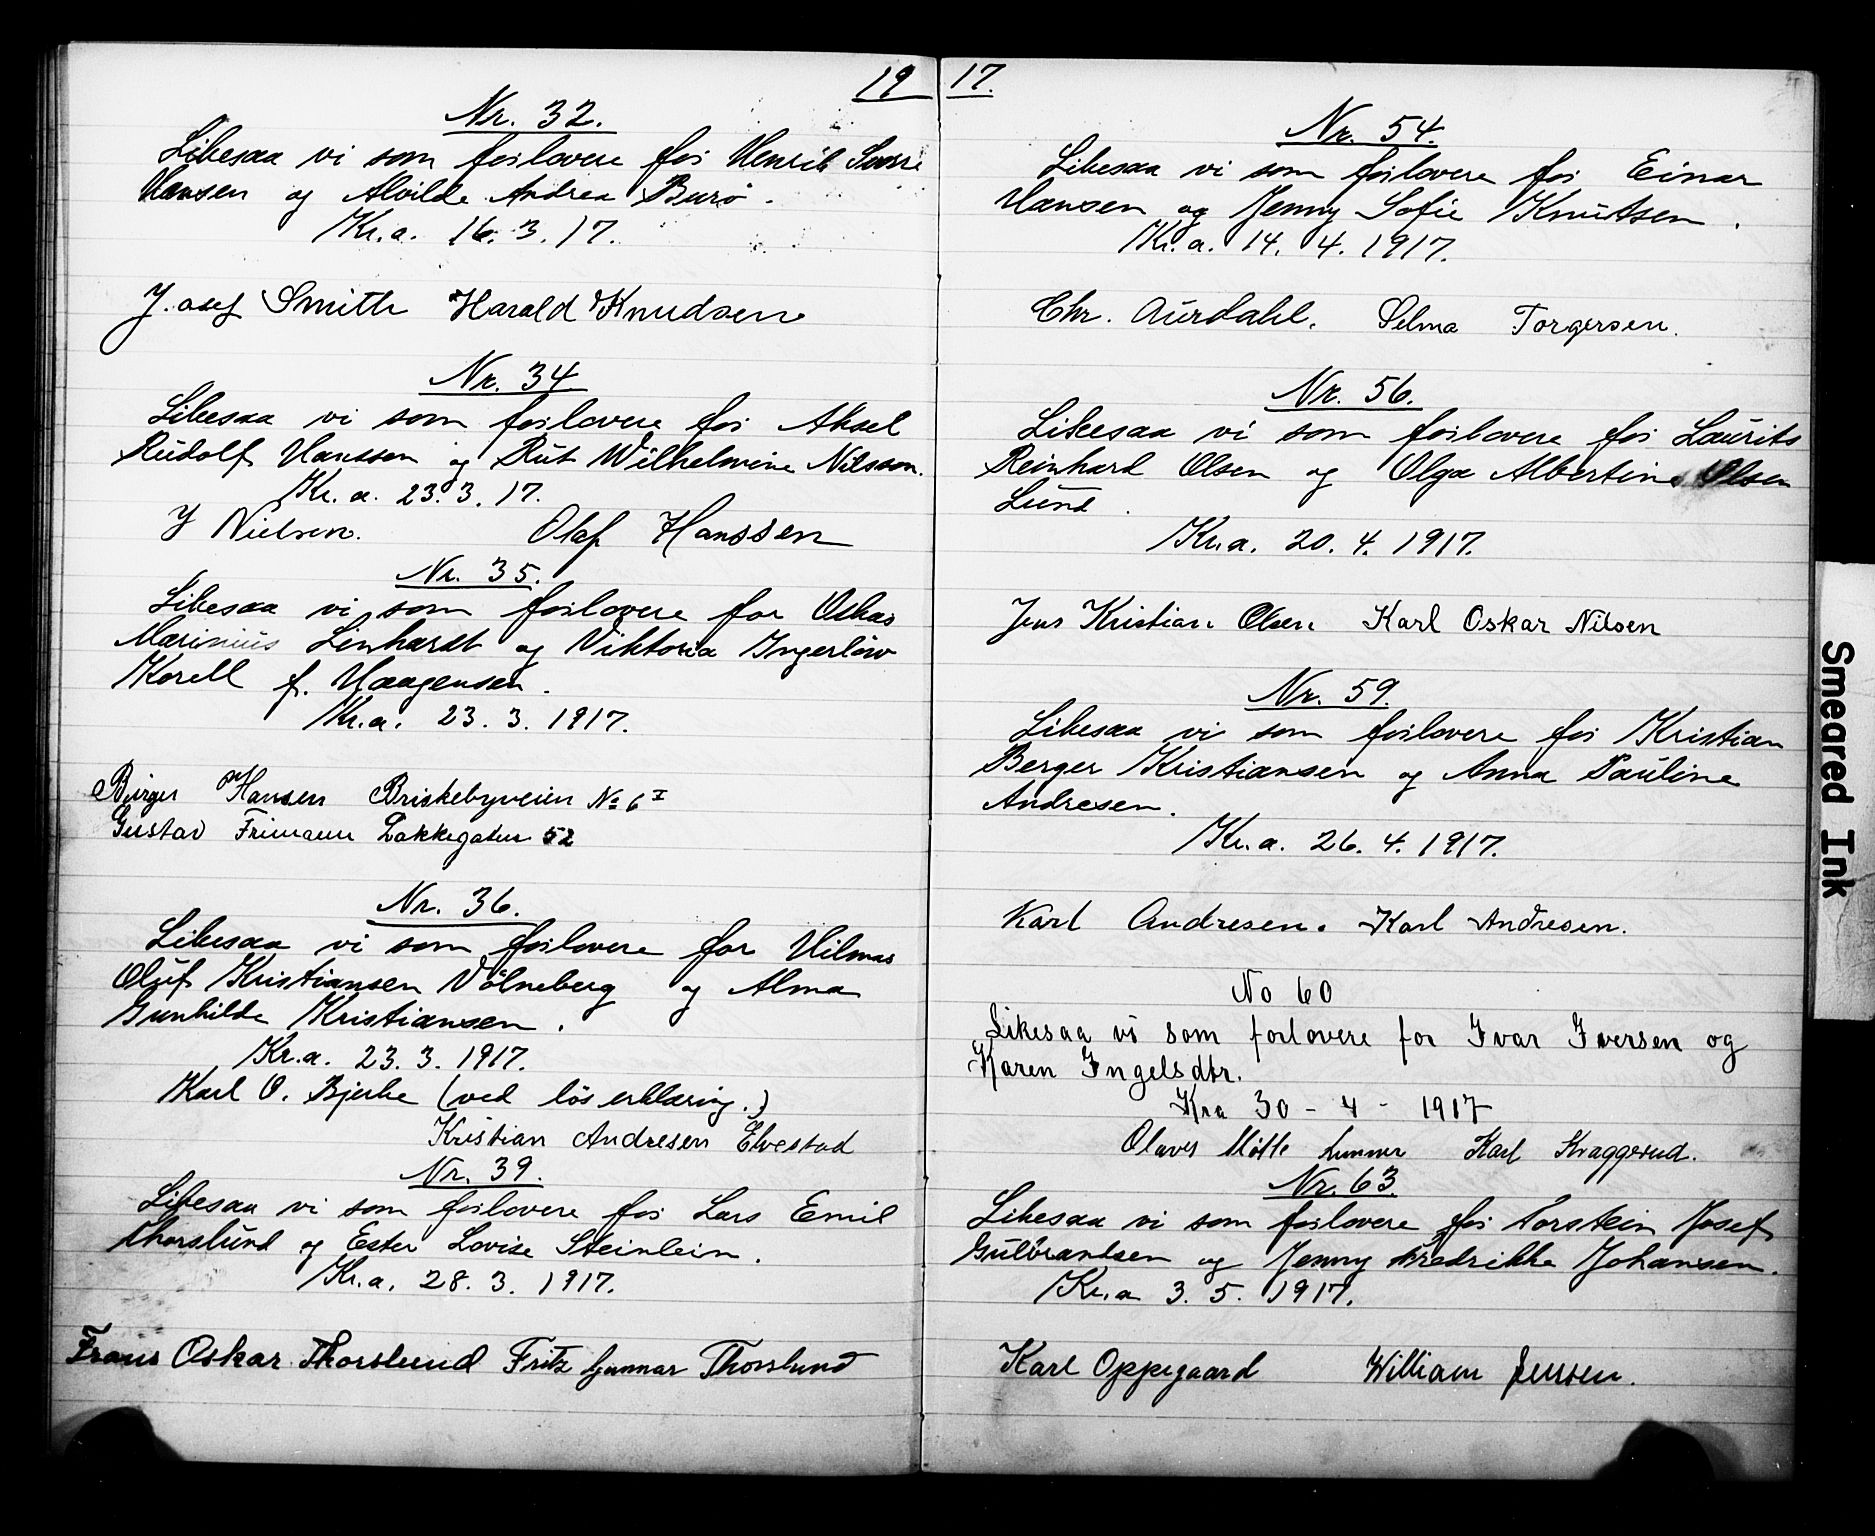 19
Nr. 32.
Likesaa vi som forlovere for Henrik
Hansen og Alvilde Andrea Burø.
Kr.a. 16. 3. 17.
Josef Smith Harald Knudsen
Nr. 34
Likesaa vi som forlovere for Aksel
Rudolf Hanssen og Rut Wilhelmine Nilsson.
Kr. a. 23. 3. 17.
J Nielsen. Olaf Hanssen
Nr. 35.
Likesaa vi som forlovere for Oskar
Marinius Linhardt og Viktoria Ingerløw
Korell f. Haagensen.
Kr.a. 23. 3. 1917.
Birger Hansen Briskebyveien No 6 I
Gustav Frimann Lakkegaten 52
Nr. 36.
Likesaa vi som forlovere for Hilmar
Oluf Kristiansen Völneberg og Alma
Gunhilde Kristiansen.
Kr.a. 23. 3. 1917.
Karl O. Bjerke (ved løs erklæring.)
Kristian Andresen Elvestad
Nr. 39.
Likesaa vi som forlovere for Lars Emil
Thorslund og Ester Lovise Steinlein.
Kr.a. 28. 3. 1917.
Frans Oskar Thorslund Fritz Gunnar Thorslund
17.
Nr. 54.
Likesaa vi som forlovere for Einar
Hansen og Jenny Sofie Knutsen.
Kr. a. 14. 4. 1917.
Chr. Aurdahl. Selma Torgersen.
Nr. 56.
Likesaa vi som forlovere for Laurits
Reinhard Olsen og Olga Albertine Olsen
Lund.
Kr.a. 20. 4. 1917.
Jens Kristian Olsen Karl Oskar Nilsen
Nr. 59.
Likesaa vi som forlovere for Kristian
Berger Kristiansen og Anna Pauline
Andresen.
Kr.a. 26. 4. 1917.
Karl Andresen. Karl Andresen.
No 60
Likesaa vi som forlovere for Ivar Iversen og
Karen Ingelsdtr.
Kra 30 - 4 - 1917
Olaves Lunner Karl Kraggerud.
Nr. 63.
Likesaa vi som forlovere for Torstein Josef
Gulbrandsen og Jenny Fredrikke Johansen.
Kr.a 3. 5. 1917.
Karl Oppegaard William Jensen.
Smeared Ink